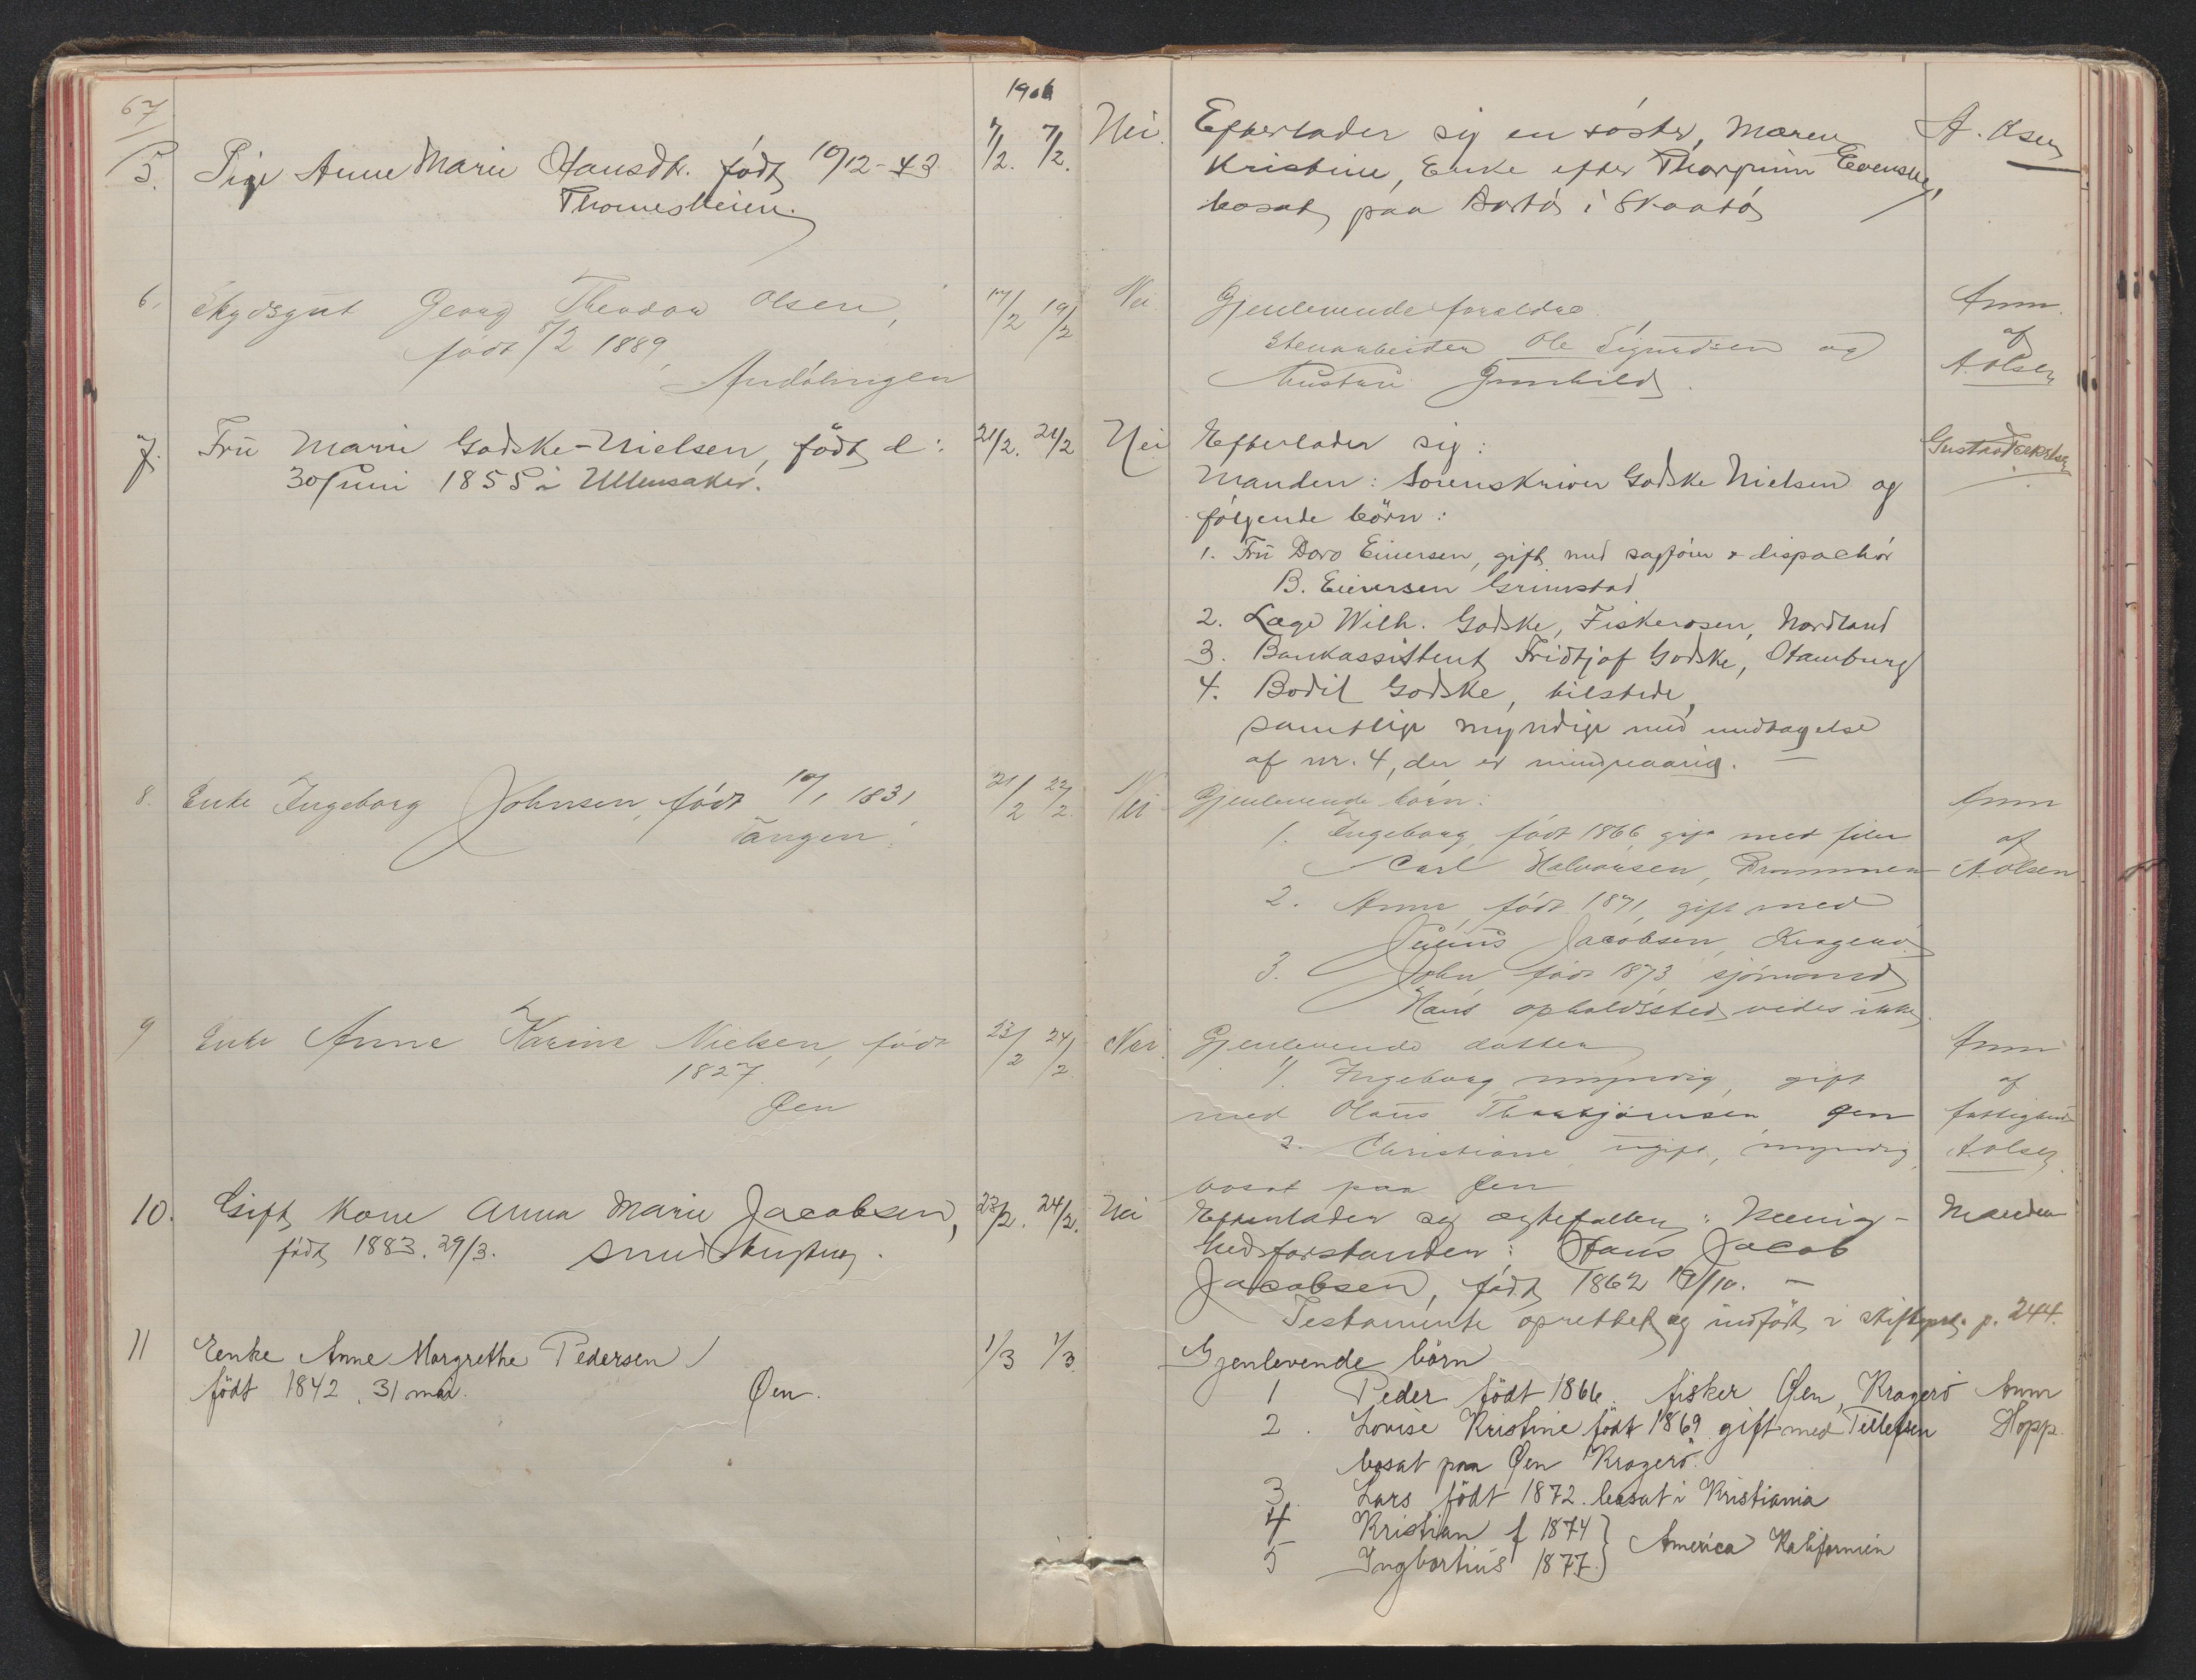 67
1906
5. Pige Anne Marie Hansdtr. født 10/12-43 7/2. 7/2. Nei. Efterlader sig en søster, Maren A. Olsen
Thomesheien. Kristine, Enke efter Thorfinn Evensen,
bosat paa Bortø i Skaatø
6. Skydsgut Georg Theodor Olsen, 17/2 19/2 Nei Gjenlevende forældre Anm.
født /2 1889, Stenarbeider Ole Sigurdsen og af
Andølingen Hustru Gunhild. A. Olsen
7. Frü Marie Godske-Nielsen, født d: 21/2. 21/2 Nei Efterlader sig:
30 Juni 1855 i Ullensaker. Manden: Sorenskriver Godske Nielsen og
følgende børn:
1. Frü Doro Einersen, gift med sagfører & dispachør
B. Einersen Grimstad
2. Læge Wilh. Godske, Fiskerosen, Nordland
3. Bankassistent Fridtjof Godske, Hamburg
4. Bodil Godske, tilstede,
samtlige myndige med undtagelse
af nr. 4, der er mindreaarig. —
8. Enke Ingeborg Johnsen, født 10/1 1831 21/2 22/2. Nei Gjenlevende børn: Anm
Tangen. 1. Ingeborg, født 1866 gift med filer af
Carl Halvorsen, Drammen A. Olsen
2. Anne, født 1871, gift med
Julius Jacobsen, Kragerø.
3. John, født 1873, sjømand
Hans opholdssted vides ikke
9 Enke Anne Karine Nielsen, født 23/2 24/2. Nei. Gjenlevende datter Anm
1827. 1. Ingeborg myndig, gift af
Øen med Olaus Thorbjørnsen Øen
2. Christiane ugift, myndig, A Olsen
bosat paa Øen
10. Gift Kone Anna Marie Jacobsen, 23/2. 24/2. Nei Efterlader sig ægtefællen: Menig- Manden
født 1883. 29/3. Smedsbugten. hedsforstander: Hans Jacob
Jacobsen, født 1862 19/10. —
Testamente oprettet og indført i skifteprot. p. 244.
11 Eenke Anne Margrethe Pedersen 1/3 1/3. Gjenlevende børn
født 1842. 31 mai. Øen. 1 Peder født 1866. fisker Øen, Kragerö Anm
2. Lovise Kristine født 1869 gift med Tellefsen Hopp.
bosat paa Øen Kragerö.
3. Lars födt 1872. bosat i Kristiania
4 Kristian f 1874 } America Kalifornien
5 Ingbortius 1877. }